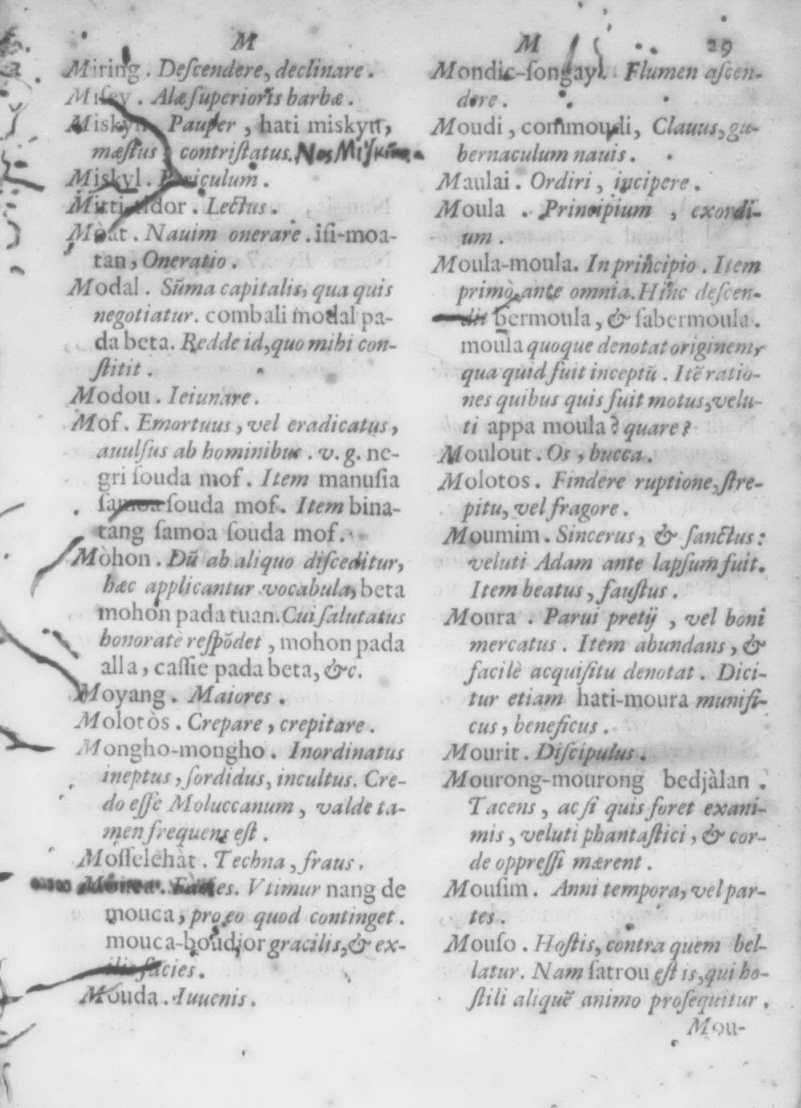 M
Miring. Deſcendere, declinare.
Miſey. Alæ ſuperioris barbæ.
Miskyn. Pauper, hati miskyn,
mæſtus, contriſtatus.
Miskyl. Periculum.
Mitti-tidor. Lectus.
Moat. Nauim onerare. iſi-moa-
tan, Oneratio.
Modal. Sūma capitalis, qua quis
negotiatur. combali modal pa-
da beta. Redde id, quo mihi con-
ſtitit.
Modou. Ieiunare.
Mof. Emortuus, vel eradicatus,
auulſus ab hominibus. v. g. ne-
gri ſouda mof. Item manuſia
ſamoa ſouda mof. Item bina-
tang ſamoa ſouda mof.
Mohon. Dū ab aliquo diſceditur,
hæc applicantur vocabula, beta
mohon pada tuan. Cui ſalutatus
honorate reſpōdet, mohon pada
alla, caſſie pada beta, &c.
Moyang. Maiores.
Molotòs. Crepare, crepitare.
Mongho-mongho. Inordinatus
ineptus, ſordidus, incultus. Cre-
do eſſe Moluccanum, valde ta-
men frequens eſt.
Moſſelehàt. Techna, fraus.
Mouca. Facies. Vtimur nang de
mouca, pro eo quod continget.
mouca-boudjor gracilis, & ex-
ilis facies.
Mouda. Iuuenis.
M 29
Mondic-ſongayl. Flumen aſcen-
dere.
Moudi, commoudi, Clauus, gu-
bernaculum nauis.
Maulai. Ordiri, incipere.
Moula. Principium, exordi-
um.
Moula-moula. In principio. Item
primò ante omnia. Hinc deſcen-
dit bermoula, & ſabermoula.
moula quoque denotat originem,
qua quid fuit inceptū. Itē ratio-
nes quibus quis fuit motus, velu-
ti appa moula? quare?
Moulout. Os, bucca.
Molotos. Findere ruptione, ſtre-
pitu, vel fragore.
Moumim. Sincerus, & ſanctus:
veluti Adam ante lapſum fuit.
Item beatus, fauſtus.
Moura. Parui pretij, vel boni
mercatus. Item abundans, &
facilè acquiſitu denotat. Dici-
tur etiam hati-moura munifi-
cus, beneficus.
Mourit. Diſcipulus.
Mourong-mourong bedjàlan.
Tacens, ac ſi quis foret exani-
mis, veluti phantaſtici, & cor-
de oppreſſi mærent.
Mouſim. Anni tempora, vel par-
tes.
Mouſo. Hoſtis, contra quem bel-
latur. Nam ſatrou eſt is, qui ho-
ſtili aliquē animo proſequitur.
Mou-